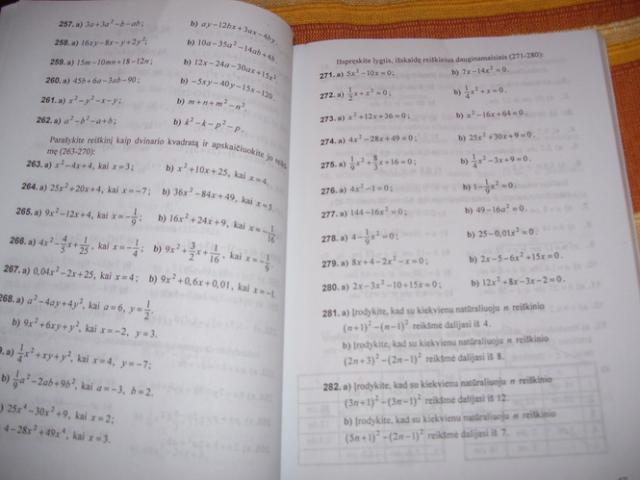 257. a) 3a+3a²−b−ab; b) ay−12bx+3ax−4by.
258. a) 16xy−8x−y+2y²; b) 10a−35a²−14ab+4b.
259. a) 15m−10mn+18−12n; b) 12x−24a−30ax+15x².
260. a) 45b+6a−3ab−90; b) −5xy−40y−15x−120.
261. a) x²−y²−x−y; b) m+n+m²−n².
262. a) a²−b²−a+b; b) k²−k−p²−p.
Parašykite reiškinį kaip dvinario kvadratą ir apskaičiuokite jo
mę (263-270):
263. a) x²−4x+4, kai x=3; b) x²+10x+25, kai x=4.
264. a) 25x²+20x+4, kai x=−7; b) 36x²−84x+49, kai x=3.
265. a) 9x²−12x+4, kai x=−1/9; b) 16x²+24x+9, kai x=−1/16.
266. a) 4x²−4/5x+1/25, kai x=−1/4; b) 9x²+3/2x+1/16, kai x=−1/6.
267. a) 0,04x²−2x+25, kai x=4; b) 9x²+0,6x+0,01, kai x=−1.
268. a) a²−4ay+4y², kai a=6, y=1/2.
b) 9x²+6xy+y², kai x=−2, y=3.
a) 1/4x²+xy+y², kai x=4, y=−7;
b) 1/9a²−2ab+9b², kai a=−3, b=2.
25x⁴−30x²+9, kai x=2;
4−28x²+49x⁴, kai x=3.
Išspręskite lygtis, išskaidę reiškinius dauginamaisiais (271-280):
271. a) 5x²−10x=0; b) 7x−14x²=0.
272. a) 1/2x+x²=0; b) 1/4x²+x=0.
273. a) x²+12x+36=0; b) x²−16x+64=0.
274. a) 4x²−28x+49=0; b) 25x²+30x+9=0.
275. a) 1/9x²+8/3x+16=0; b) 1/4x²−3x+9=0.
276. a) 4x²−1=0; b) 1−1/9x²=0.
277. a) 144−16x²=0; b) 49−16a²=0.
278. a) 4−1/9x²=0; b) 25−0,01x²=0.
279. a) 8x+4−2x²−x=0; b) 2x−5−6x²+15x=0.
280. a) 2x−3x²−10+15x=0; b) 12x²+8x−3x−2=0.
281. a) Įrodykite, kad su kiekvienu natūraliuoju n reiškinio
(n+1)²−(n−1)² reikšmė dalijasi iš 4.
b) Įrodykite, kad su kiekvienu natūraliuoju n reiškinio
(2n+3)²−(2n−1)² reikšmė dalijasi iš 8.
282. a) Įrodykite, kad su kiekvienu natūraliuoju n reiškinio
(3n+1)²−(3n−1)² reikšmė dalijasi iš 12.
b) Įrodykite, kad su kiekvienu natūraliuoju n reiškinio
(5n+1)²−(2n−1)² reikšmė dalijasi iš 7.